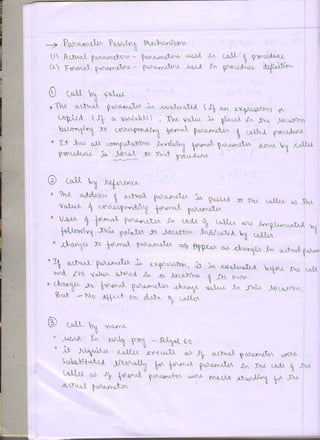 → Parameter Passing Mechanism :
(1) Actual parameters – parameters used in call of procedure
(2) Formal parameters – parameters used in procedure definition
① Call by value
• The actual parameter is evaluated (if an expression) or
copied (if a variable). The value is placed in the location
belonging to corresponding formal parameter of called procedure
• It has all computation involving formal parameters, done by called
procedure is local to that procedure.
② Call by reference
• The address of actual parameter is passed to the callee as the
value of corresponding formal parameter
• Uses of formal parameter in code of callee are implemented by
following this pointer to location indicated by caller.
• changes to formal parameter ⇒ appear as changes in actual param
• If actual parameter is expression, it is evaluated before the call
and its value stored in a location of its own.
• changes to formal parameter change value in this location,
But – No effect on data of caller
③ Call by name
• used in early prog – Algol 60
• it requires callee execute as if actual parameter were
substituted literally for formal parameter in the code of the
callee as if formal parameter were macro standing for the
actual parameter